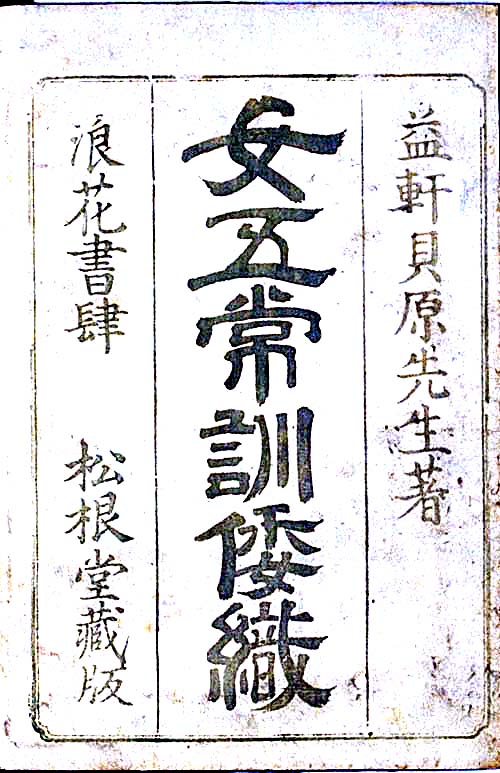 益軒貝原先生著
女五常訓倭織
浪花書肆 松根堂藏版